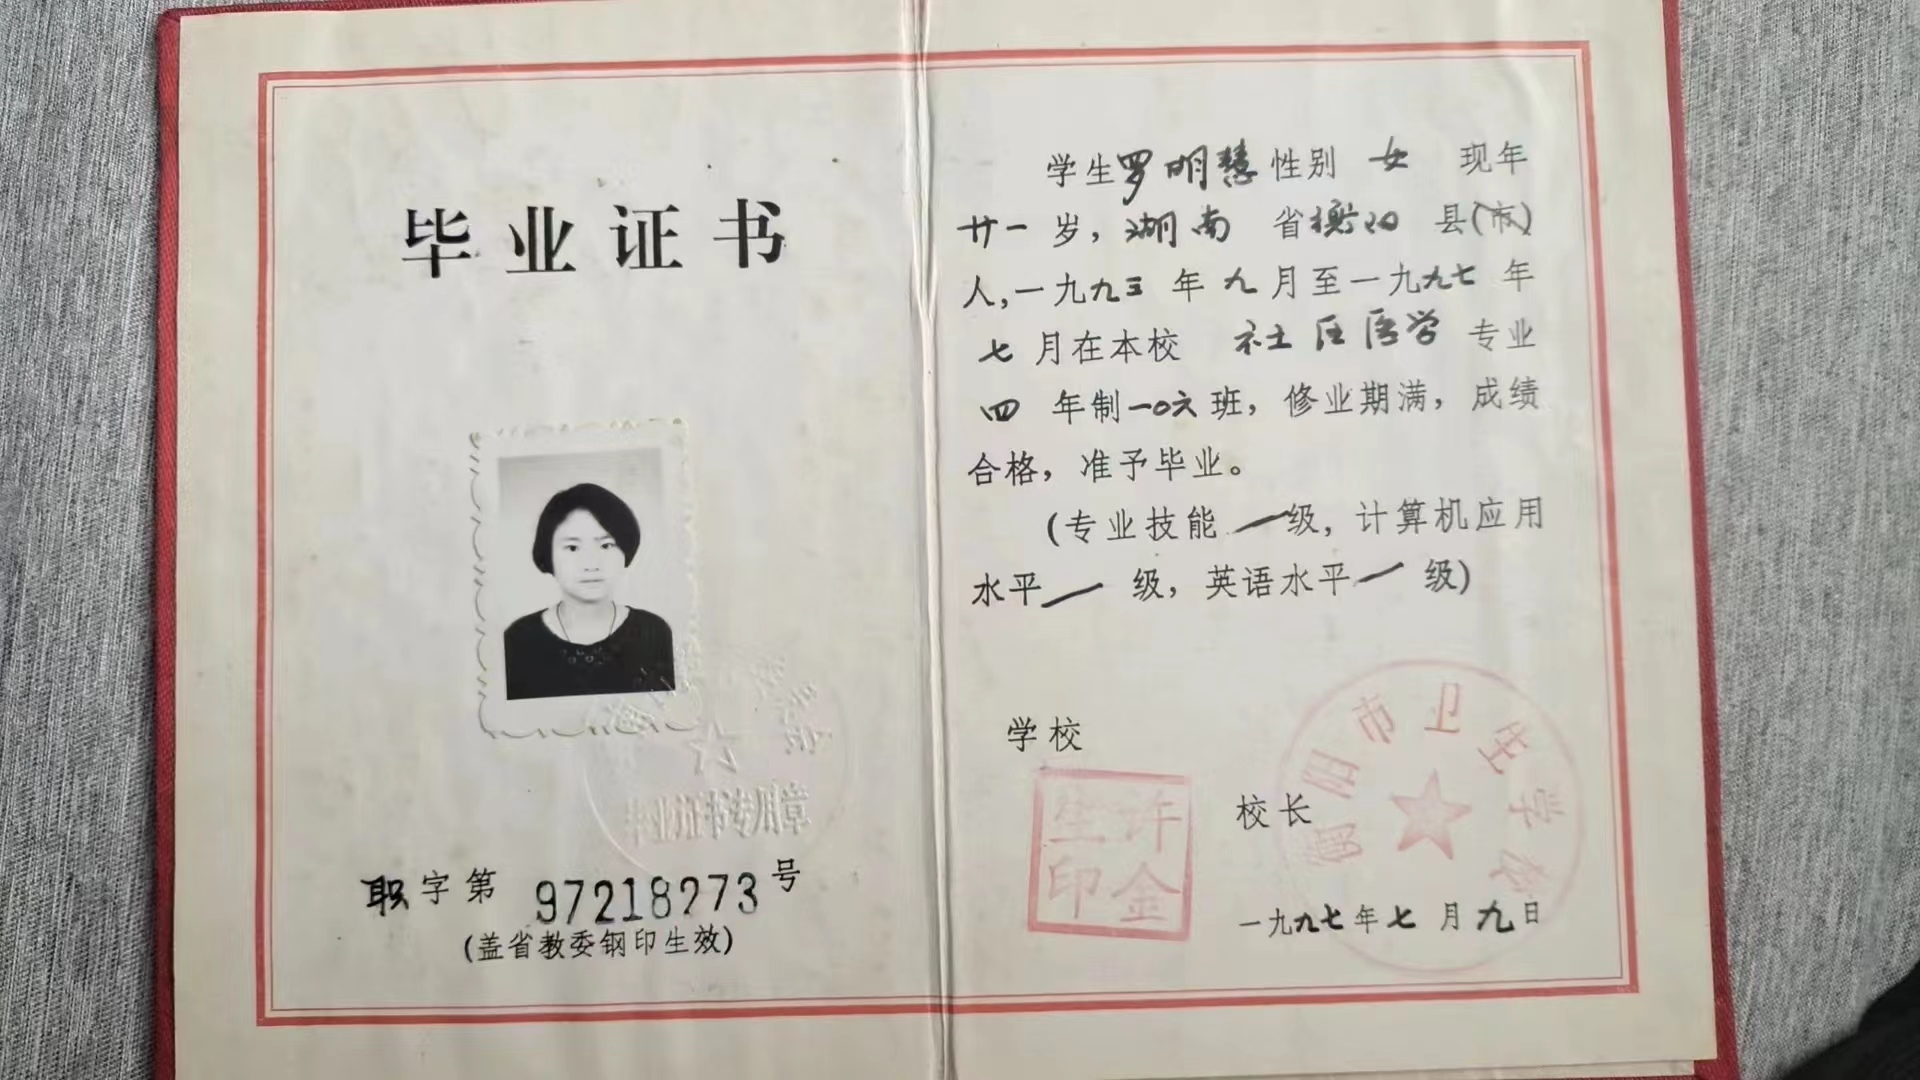 毕业证书
毕业证书专用章
职字第 97218273 号
(盖省教委钢印生效)
学生罗明慧性别 女 现年
廿一岁，湖南 省衡阳 县(市)
人,一九九三 年 九月至一九九七 年
七月在本校 社区医学 专业
四 年制一〇六班，修业期满，成绩
合格，准予毕业。
(专业技能 一级，计算机应用
水平 一 级，英语水平 一 级)
学校
衡阳市卫生学校
许金生印
校长
一九九七年七月九日